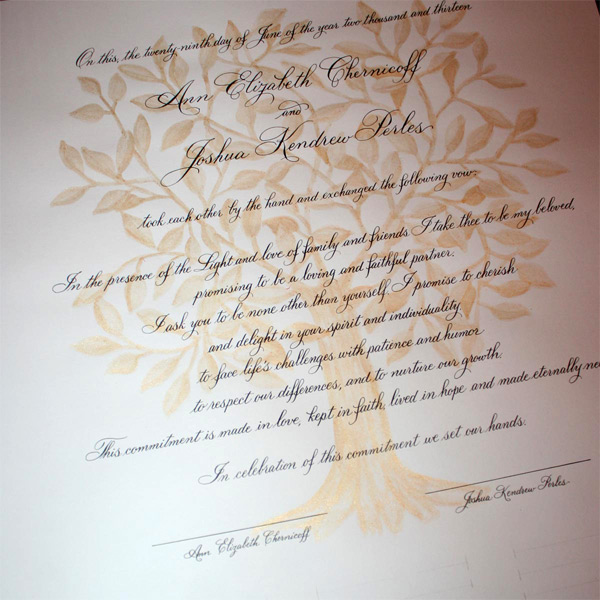 On this, the twenty-ninth day of June of the year two thousand and thirteen
Ann Elizabeth Chernicoff
and
Joshua Kendrew Perles
took each other by the hand and exchanged the following vow:
In the presence of the Light and love of family and friends I take thee to be my beloved,
promising to be a loving and faithful partner.
I ask you to be none other than yourself. I promise to cherish
and delight in your spirit and individuality,
to face life's challenges with patience and humor
to respect our differences, and to nurture our growth.
This commitment is made in love, kept in faith, lived in hope and made eternally
In celebration of this commitment we set our hands.
Ann Elizabeth Chernicoff
Joshua Kendrew Perles